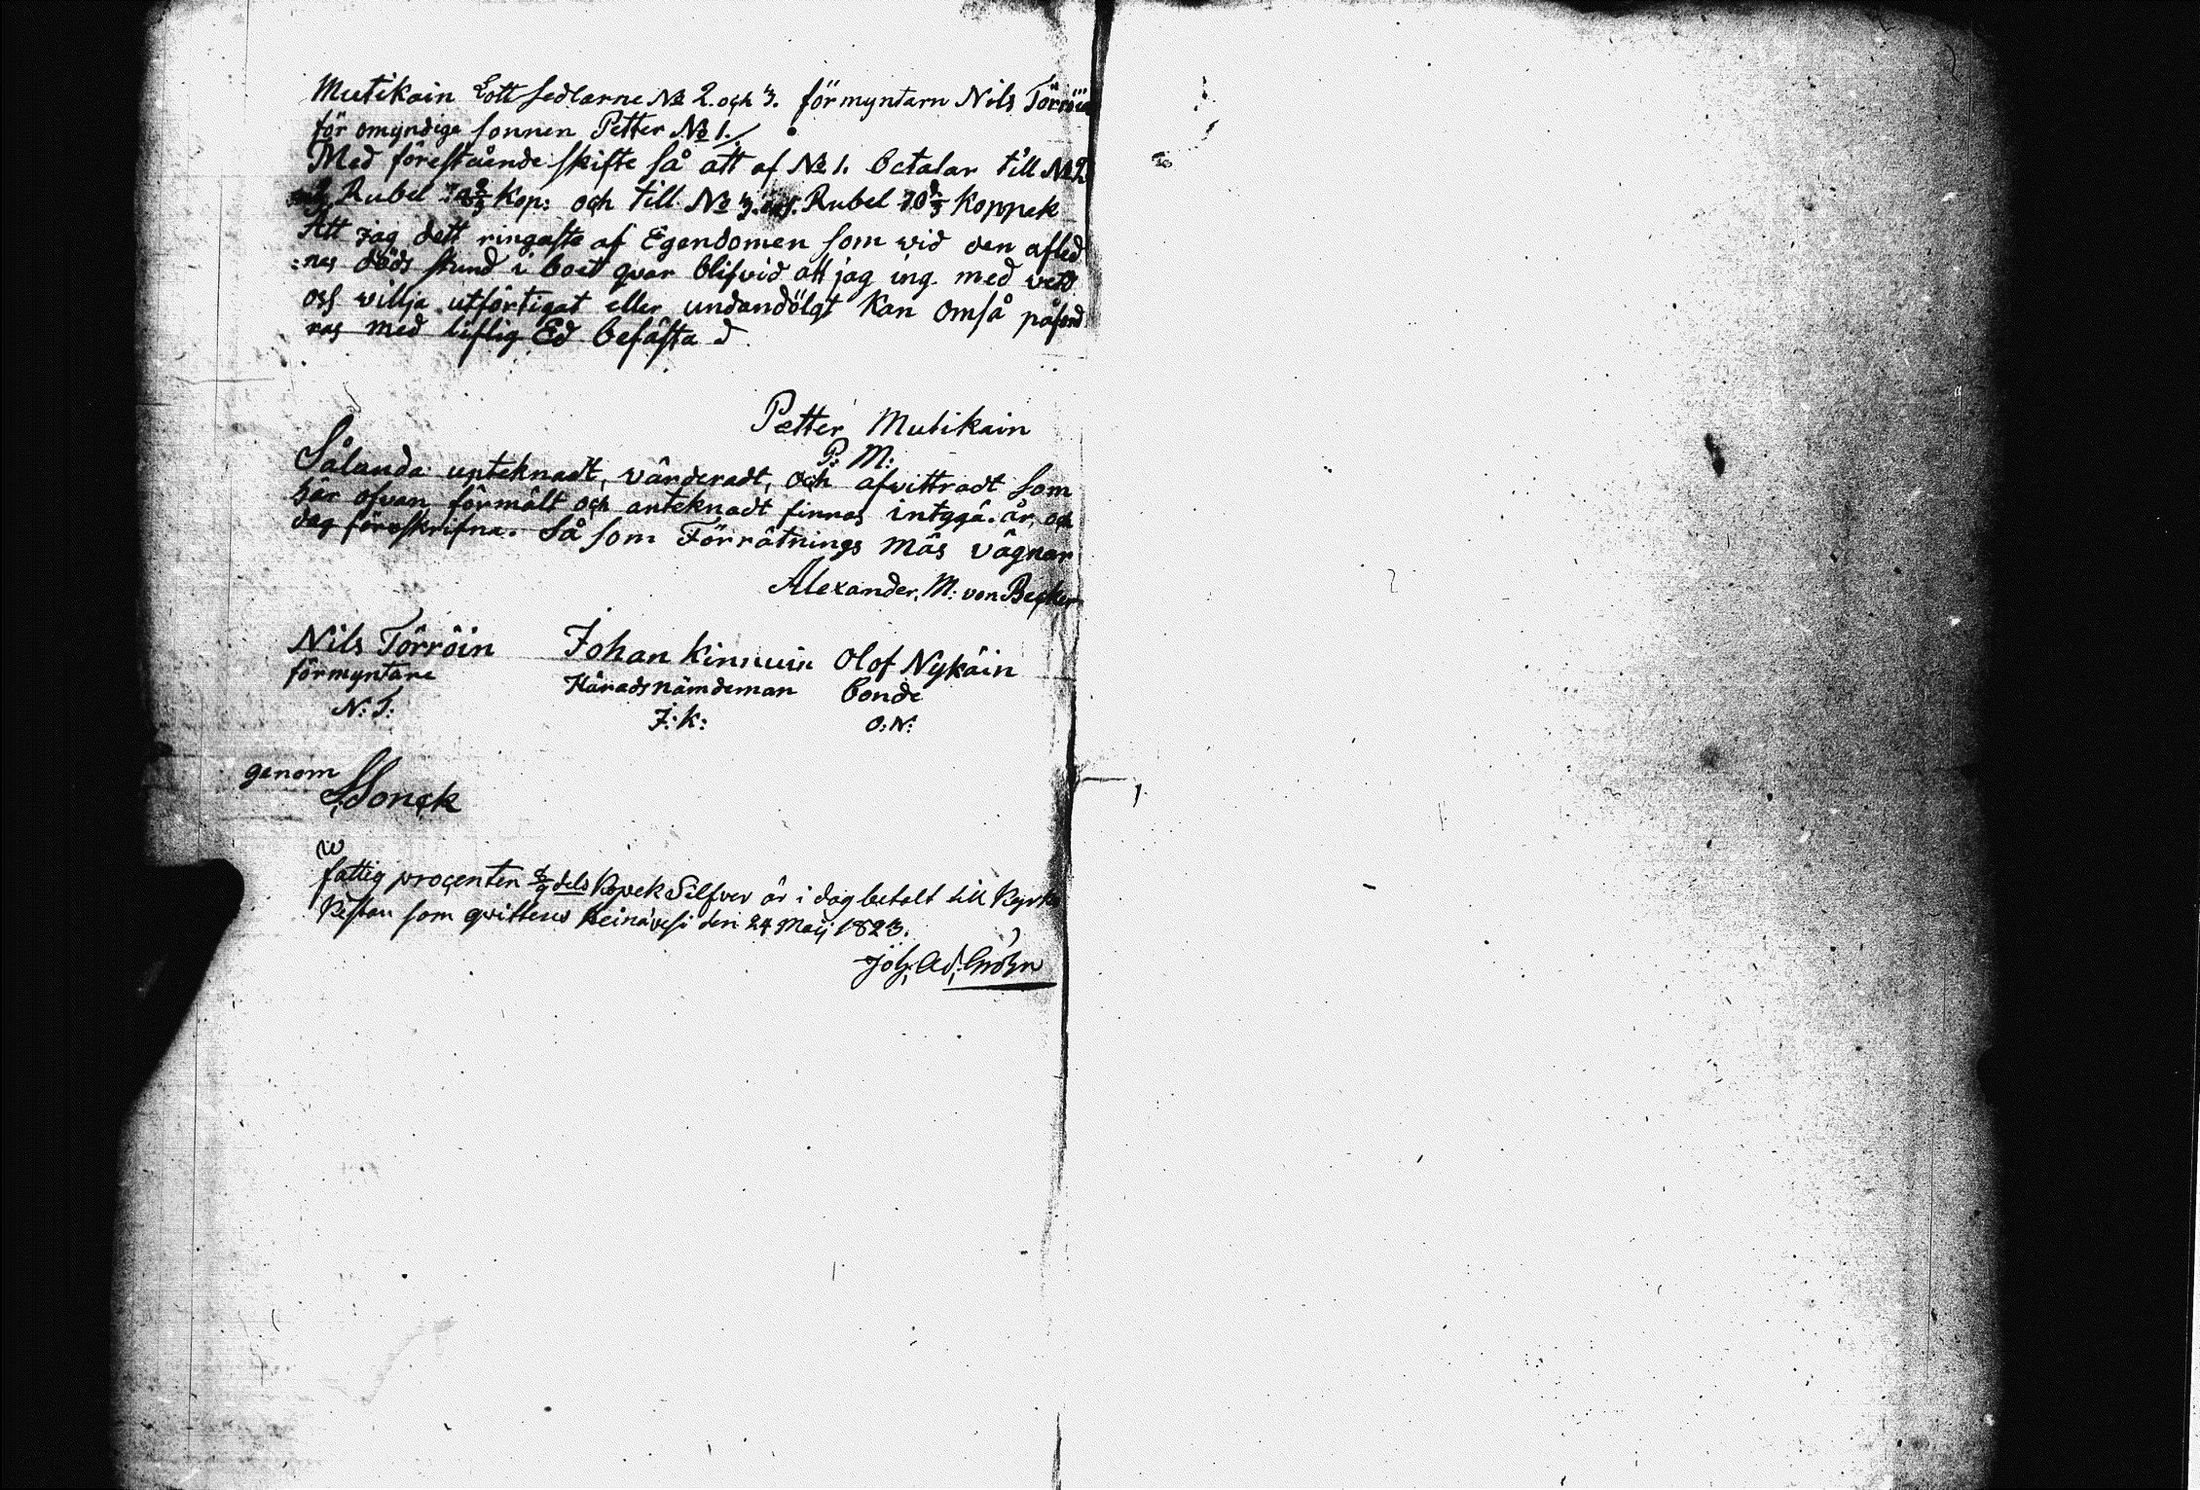 Mutikain Lott sedlarne № 2. och 3. förmyntarn Nils Törröin
för omyndige sonnen Petter № 1./.
Med förestående skifte så att af № 1. betalar till № 2
Rubel Kop: och till № 3. Rubel 70 2/3 Koppek
Att jag dett ringaste af Egendomen som wid den afled
:nes döds stund i boet qvar blifvid att jag ing. med vett
och villja utförtigat eller undandölgt kan omså påford
ras med liflig Ed befästa d.
Petter Mutikain
P: M:
Sålunda upteknadt, värderadt, och afvittradt som
här ofvan förmält och anteknadt finnas intygga. år, och
dag föreskrifna. Så som Förrätnings Mäs vägnar
Alexander. M: von Becker
Nils Törröin Johan Kinnuin Olof Nykäin
förmyntare Häradsnämdeman bonde
N: T: J: K: O: N:
genom
Sonck
fattig procenten dels Kopek Silfver är i dag betalt till Kyrko
Kessan som qvitteras Heinävesi den 24 Maij 1823.
Joh. Ad. Gröhn